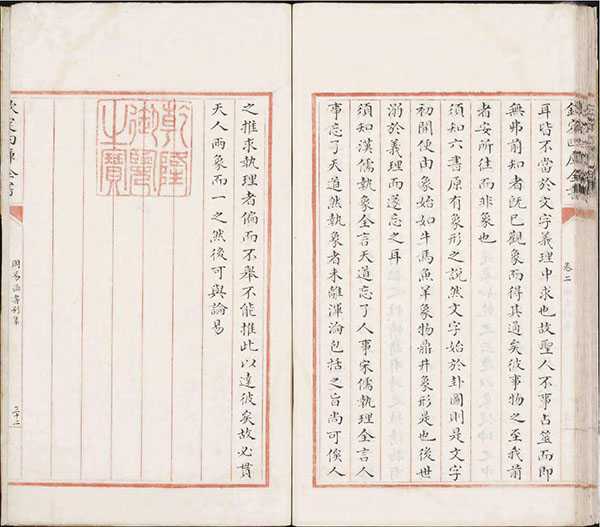 欽定四庫全書
卷二
耳皆不當於文字義理中求也故聖人不事占筮而即
無弗前知者既已觀象而得其通矣彼事物之至我前
者安所往而非象也
須知六書原有象形之說然文字始於卦圖則是文字
初闢便由象始如牛馬魚羊象物鼎井象形是也後世
溺於義理而遂忘之耳
須知漢儒執象全言天道忘了人事宋儒執理全言人
事忘了天道然執象者未離渾淪包括之旨尚可俟人
之推求執理者偏而不舉不能推此以達彼矣故必貫
天人兩象而一之然後可與論易
乾隆
御覽
之寶
欽定四庫全書
周易函書別集